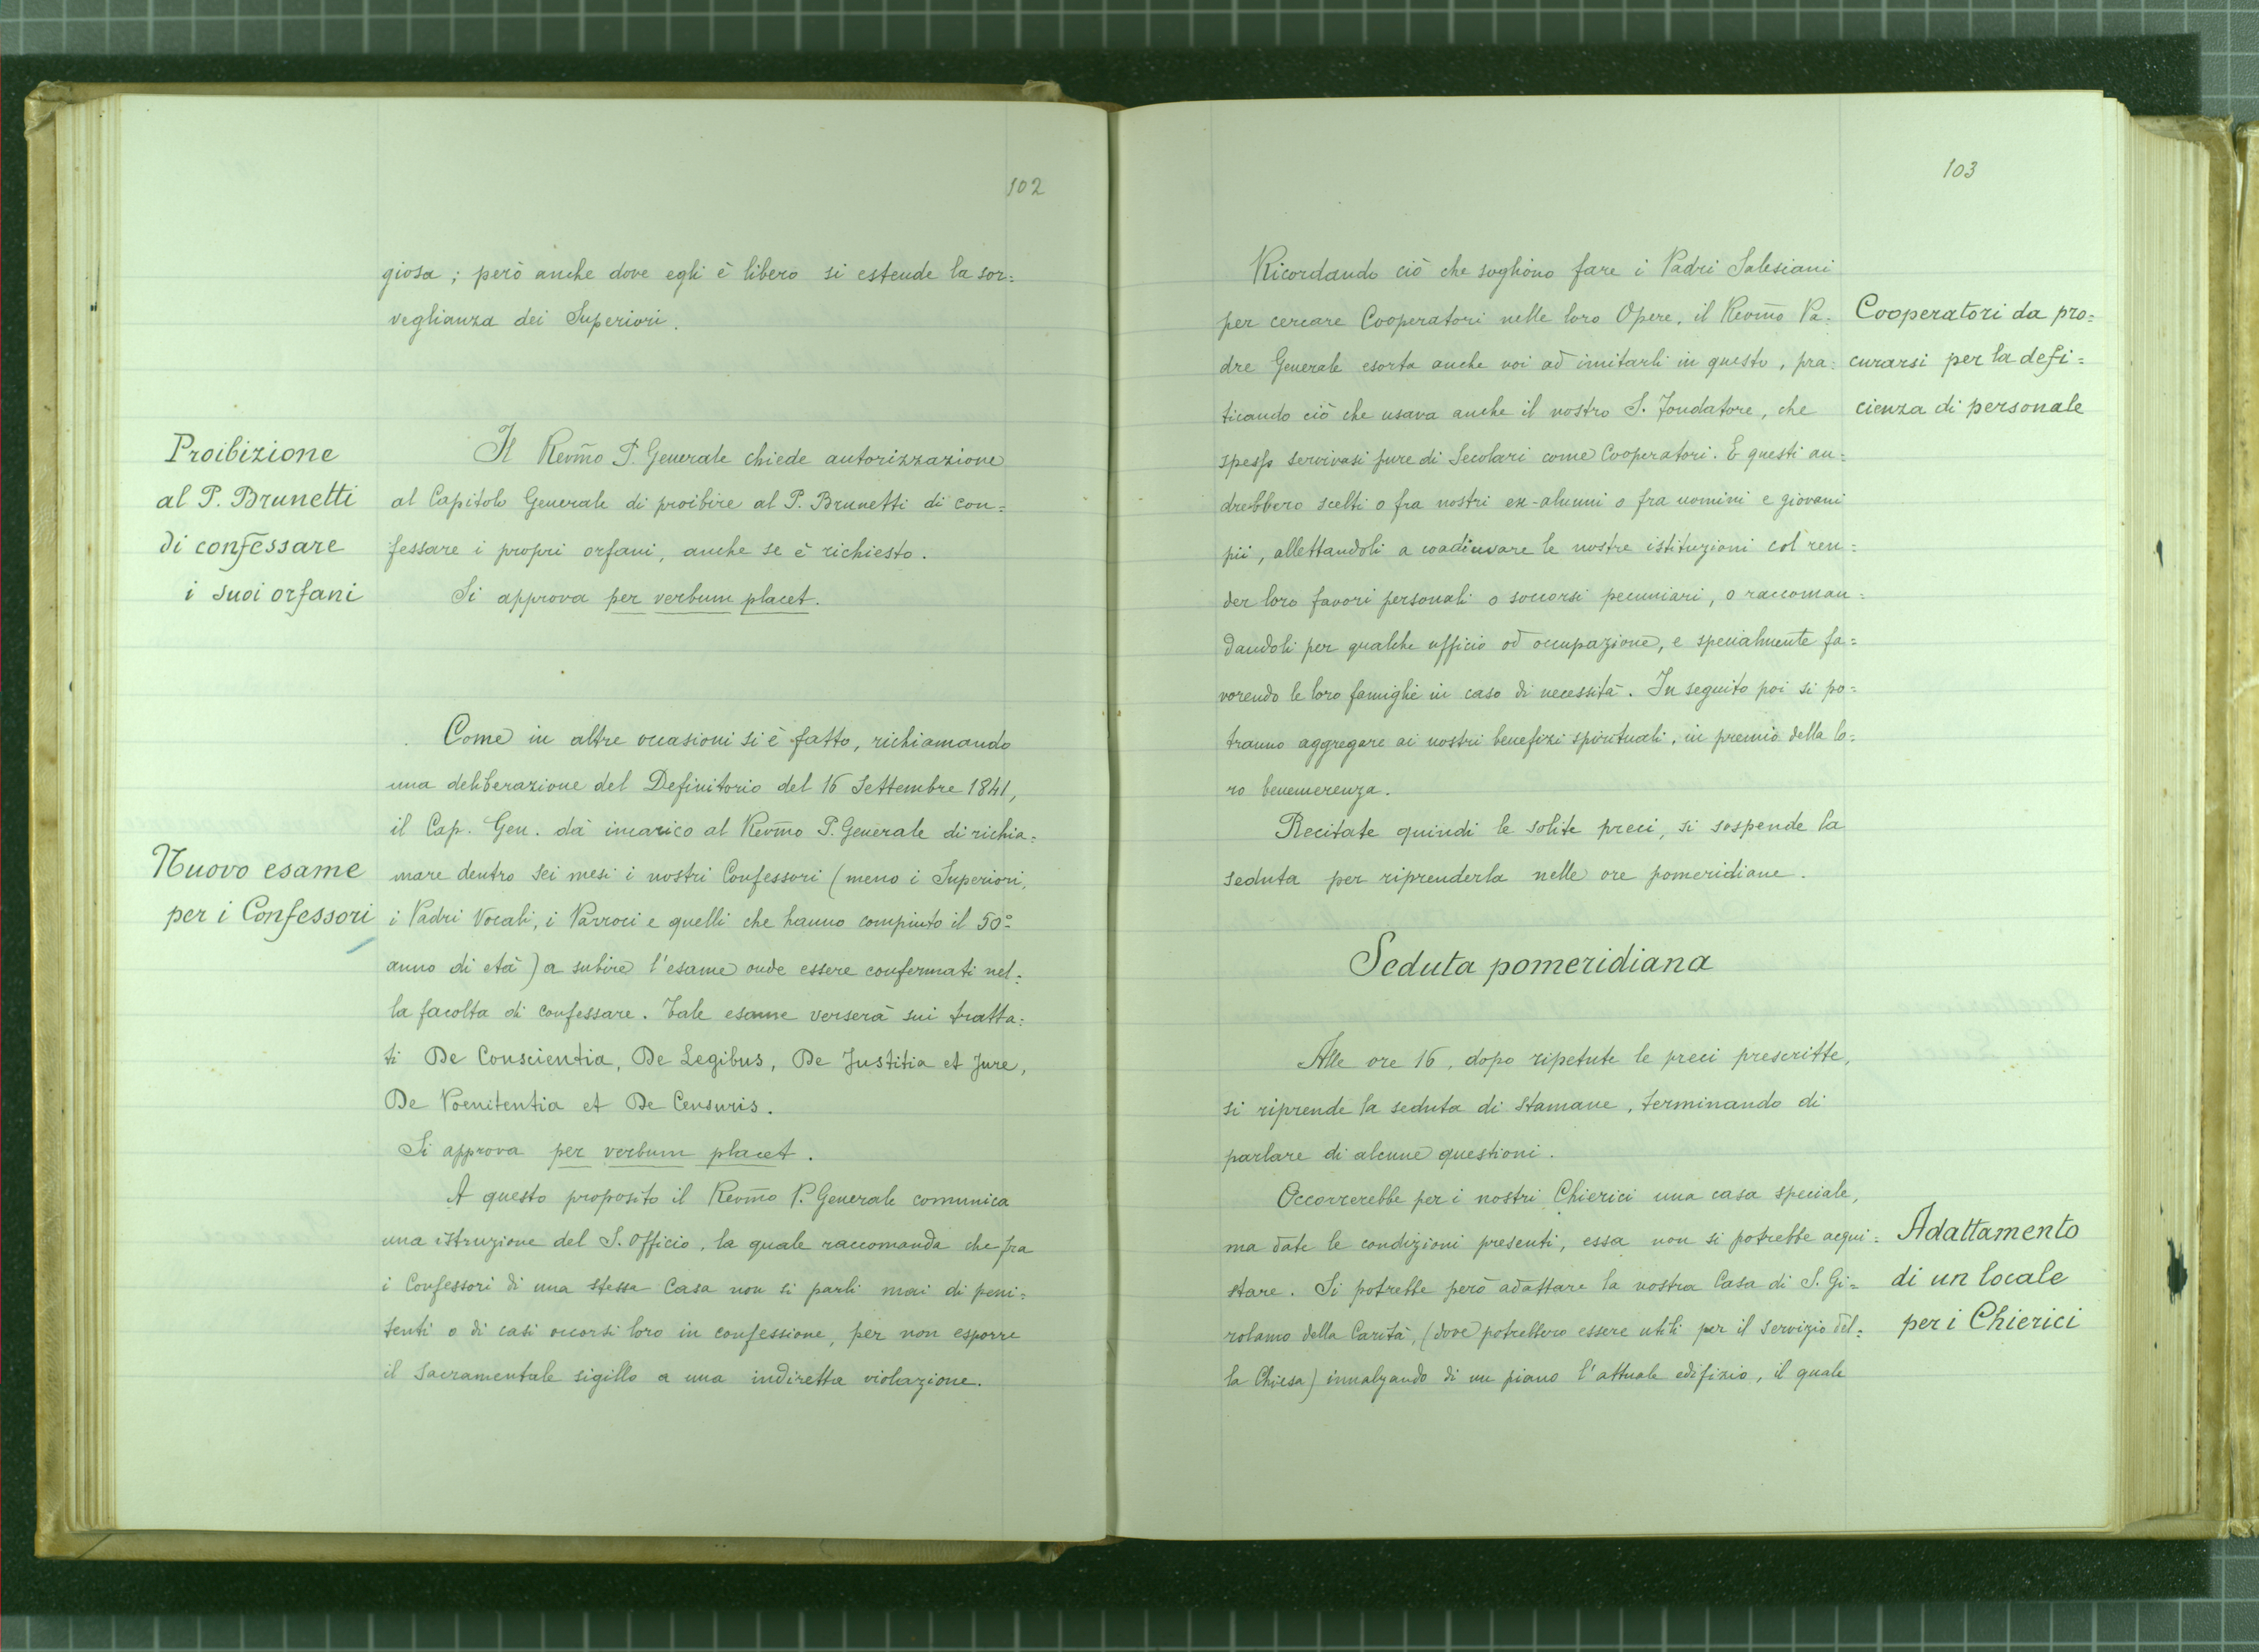 102
giosa; però anche dove egli è libero si estende la sor=
veglianza dei Superiori.
Proibizione
al P. Brunetti
di confessare
i suoi orfani
Il Revm̃o P. Generale chiede autorizzazione
al Capitolo Generale di proibire al P. Brunetti di con=
fessare i propri orfani, anche se è richiesto.
Si approva per verbum placet.
Come in altre occasioni si è fatto, richiamando
una deliberazione del Definitorio del 16 Settembre 1841,
il Cap. Gen. dà incarico al Revm̃o P. Generale di richia=
Nuovo esame
per i Confessori
mare dentro sei mesi i nostri Confessori (meno i Superiori,
i Padri Vocali, i Parroci e quelli che hanno compiuto il 50º
anno di età) a subire l'esame onde essere confermati nel=
la facolta di confessare. Tale esame verserà sui tratta=
ti De Conscientia, De Legibus, De Justitia et Jure,
De Poenitentia et De Censuris.
Si approva per verbum placet.
A questo proposito il Revm̃o P. Generale comunica
una istruzione del S. Officio, la quale raccomanda che fra
i Confessori di una stessa Casa non si parli mai di peni=
tenti o di casi occorsi loro in confessione, per non esporre
il sacramentale sigillo a una indiretta violazione.
103
Ricordando ciò che sogliono fare i Padri Salesiani
per cercare Cooperatori nelle loro Opere, il Revm̃o Pa=
dre Generale esorta anche noi ad imitarli in questo, pra=
ticando ciò che usava anche il nostro S. Fondatore, che
Cooperatori da pro=
curarsi per la defi=
cienza di personale
spesso servivasi pure di Secolari come Cooperatori. E questi an=
drebbero scelti o fra nostri ex-alunni o fra uomini e giovani
pii, allettandoli a coadiuvare le nostre istituzioni col ren=
der loro favori personali o soccorsi pecuniari, o raccoman=
dandoli per qualche ufficio od occupazione, e specialmente fa=
vorendo le loro famiglie in caso di necessità. In seguito poi si po=
tranno aggregare ai nostri benefizi spirituali, in premio della lo=
ro benemerenza.
Recitate quindi le solite preci, si sospende la
seduta per riprenderla nelle ore pomeridiane.
Seduta pomeridiana
Alle ore 16, dopo ripetute le preci prescritte,
si riprende la seduta di stamane, terminando di
parlare di alcune questioni.
Occorrerebbe per i nostri Chierici una casa speciale,
ma date le condizioni presenti, essa non si potrebbe acqui=
stare. Si potrebbe però adattare la nostra Casa di S. Gi=
rolamo della Carità, (dove potrebbero essere utili per il servizio del=
la Chiesa) innalzando di un piano l'attuale edifizio, il quale
Adattamento
di un locale
per i Chierici